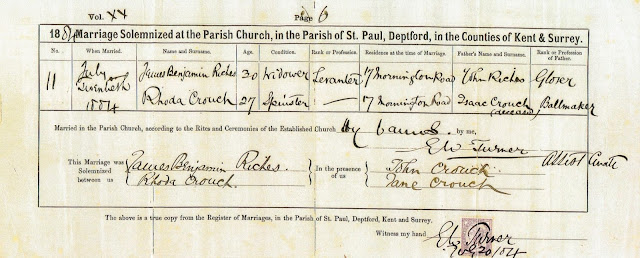 Vol. XX Page 6
1884 Marriage Solemnized at the Parish Church, in the Parish of St. Paul, Deptford, in the Counties of Kent & Surrey.
No. When Married. Name and Surname. Age. Condition. Rank or Profession. Residence at the time of Marriage. Father's Name and Surname. Rank or Profession of Father.
11 July Twentieth 1884 James Benjamin Riches 30 Widower 17 Mornington Road John Riches
Rhoda Crouch 27 Spinster — 17 Mornington Road Isaac Crouch (deceased) Ballmaker
Married in the Parish Church, according to the Rites and Ceremonies of the Established Church by Banns by me,
E W Turner
Assist Curate
This Marriage was Solemnized between us James Benjamin Riches. Rhoda Crouch. In the presence of us John Crouch Jane Crouch
The above is a true copy from the Register of Marriages, in the Parish of St. Paul, Deptford, Kent and Surrey.
Witness my hand E W Turner
July 20/84